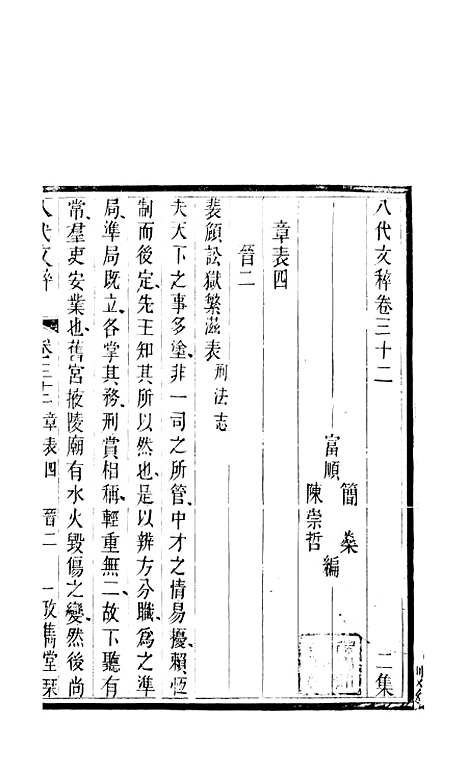 八代文稡卷三十二 二集
富順 簡燊 陳崇哲 編
章表四
晉二
裴頠訟獄繁滋表 刑法志
夫天下之事多塗、非一司之所管、中才之情易擾、賴恆
制而後定、先王知其所以然也、是以辨方分職、爲之準
局、準局既立、各掌其務、刑賞相稱、輕重無二、故下聽有
常、羣吏安業也、舊宮掖陵廟有水火毀傷之變、然後尚
八代文稡 卷三十二 章表四 晉二 一 攷雋堂栞